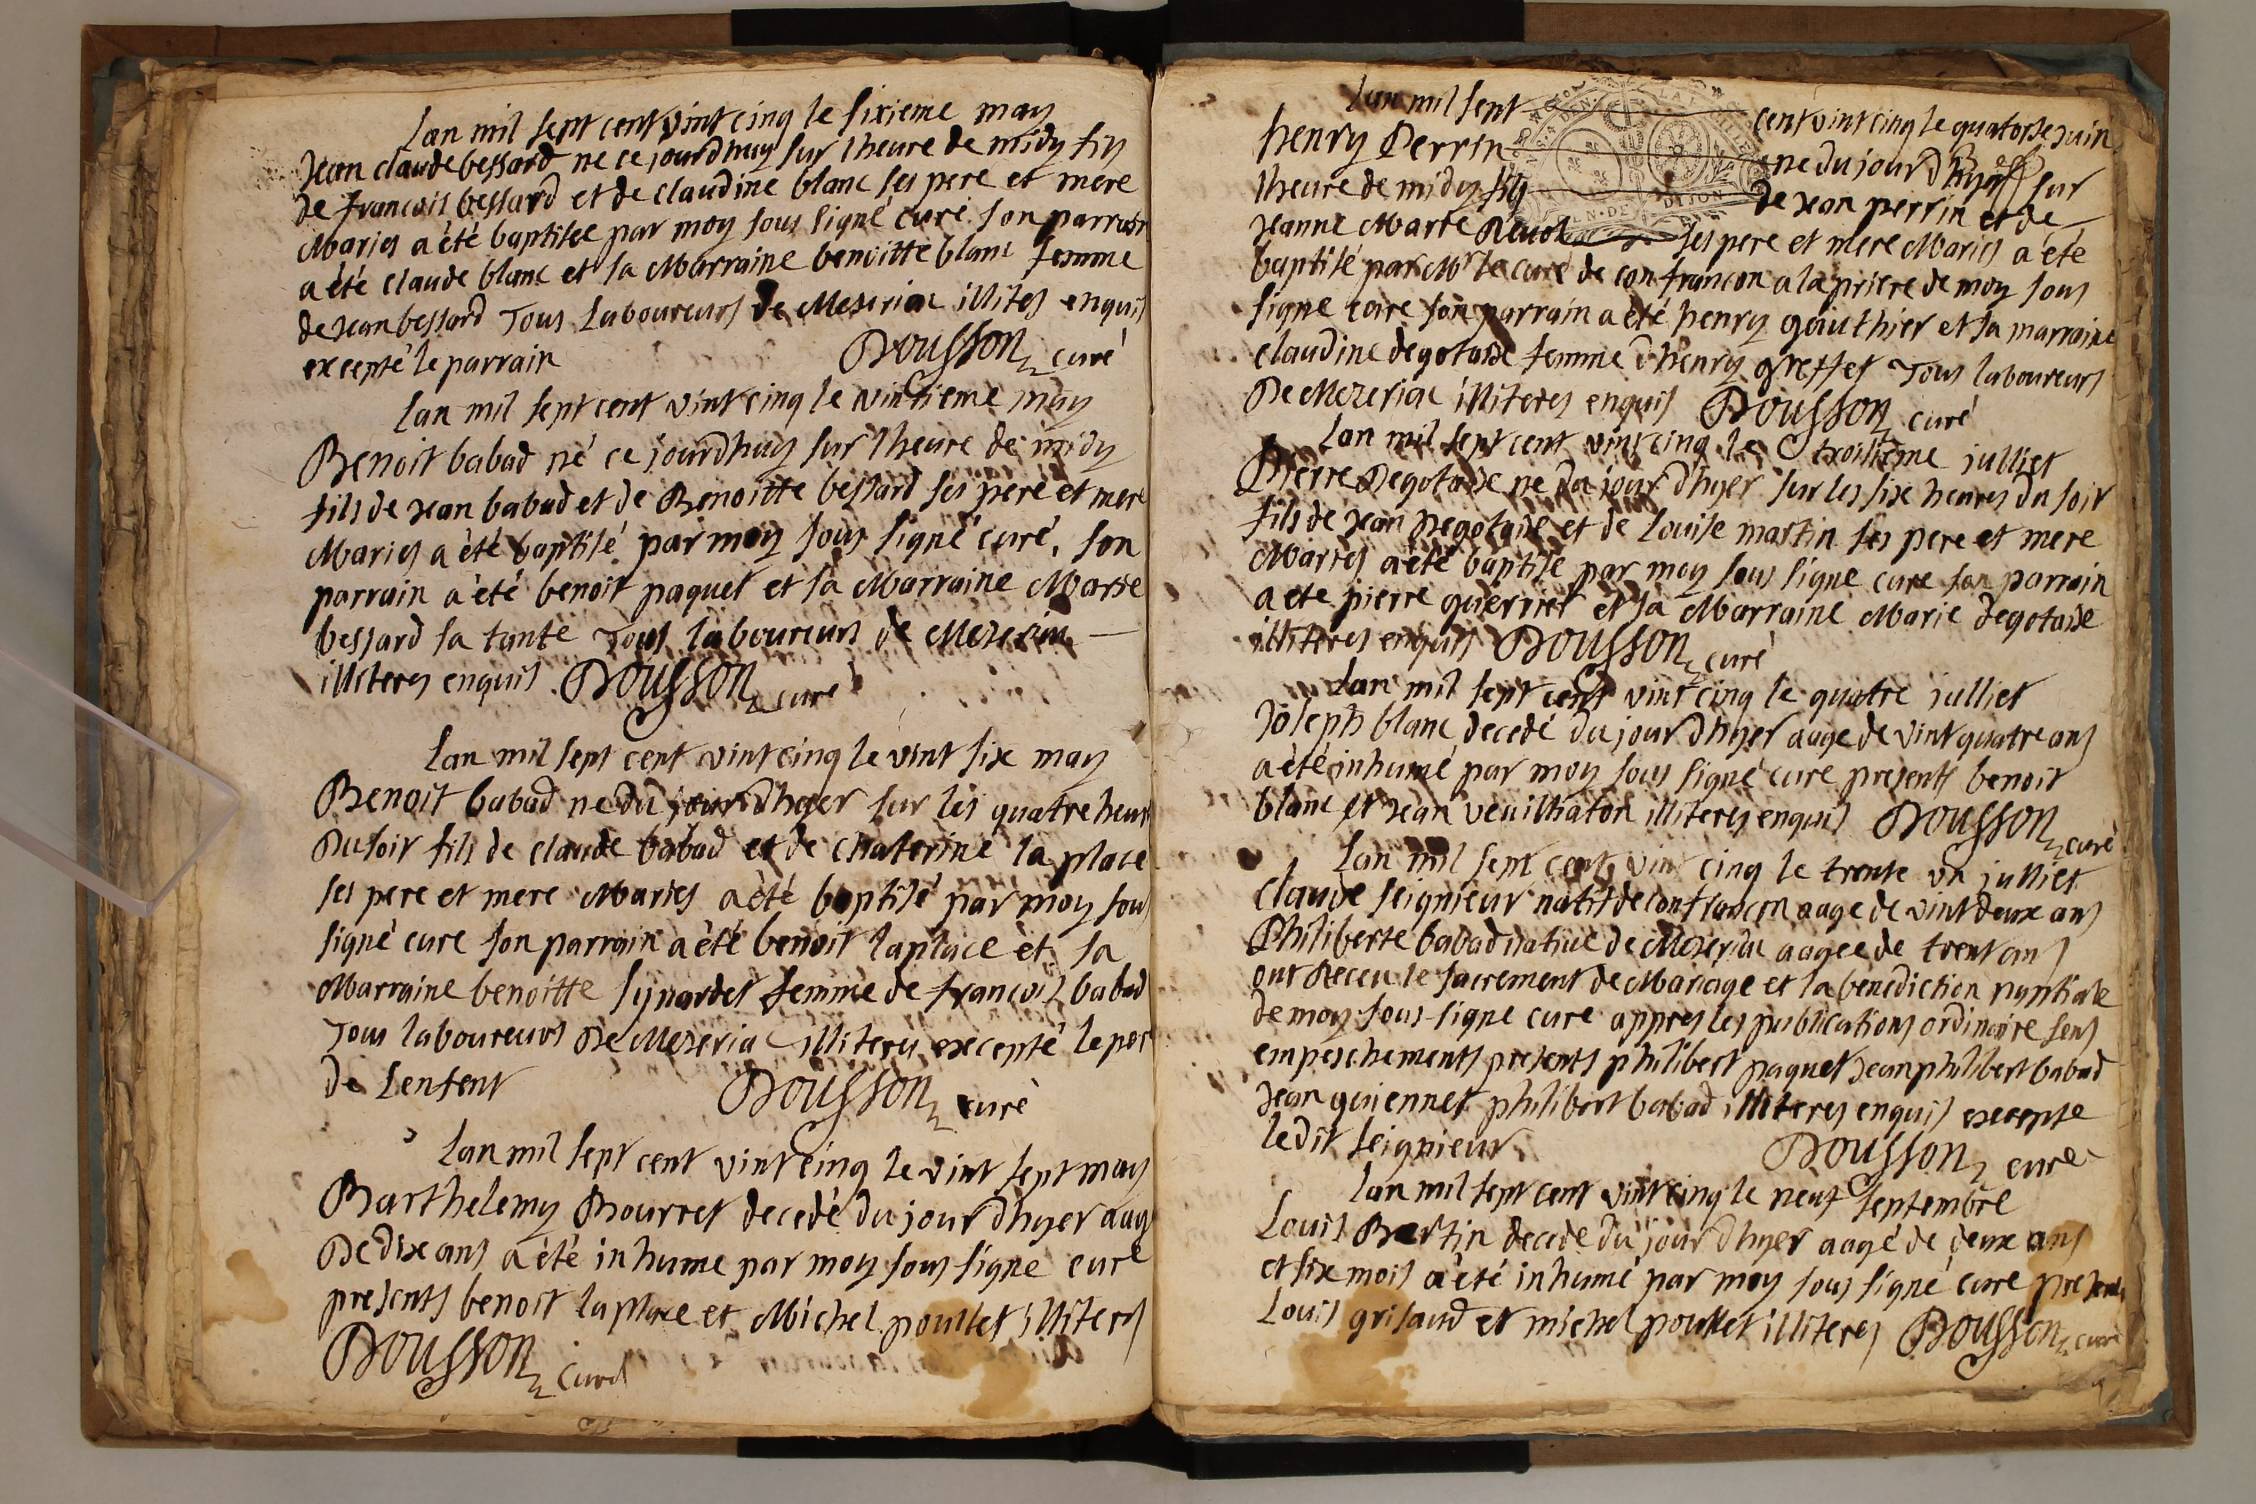 lan mil sept cent vint cinq le sixieme may
Jean claude bessard ne ce jourdhuy sur lheure de midy fils
de francois bessard et de claudine blanc ses pere et mere
Maries a été baptisee par moy sous signé curé son parrain
a été claude blanc et sa Marraine benoitte blanc femme
de Jean bessard Tous Laboureurs de Meseriac illites enquis
excepté le parrain Dousson curé
lan mil sept cent vint cinq le vintieme may
Benoit babad né ce jourdhuy sur lheure de midy
fils de Jean babad et de Benoitte bessard ses pere et mere
Maries a été baptisé par moy sous signé curé, son
parrain a été benoit paquet et sa Marraine Marie
bessard sa tante Tous laboureurs de Meseria
illiteres enquis Dousson curé
lan mil sept cent vint cinq le vint six may
Benoit babad ne du jour dhyer sur les quatre heur
Du soir fils de claude babad et de Chaterine la place
ses pere et mere Maries a été baptisé par moy sous
signé cure son parrain a été benoit laplace et sa
Marraine benoitte synardet femme de francois babad
Tous laboureurs De Meseria illiteres excepté le per
de Lenfent Dousson curé
Lan mil sept cent vint cinq le vint sept may
Barthelemy Bourret decedé du jour dhyer aag
De dix ans a été inhume par moy sous signe curé
presents benoit laplace et Michel poullet illiteres
Dousson curé
Lan mil sept cent vint cinq le quatorse Juin
henry Perrin ne du jour dhyer sur
lheure de midy fils de Jean perrin et de
Jeanne Marie ses pere et mere Maries a été
baptisé par Mr le curé de confrancon a la priere de moy sous
signe cure son parrain a été henry gauthier et sa marraine
claudine degotaise femme dhenry greffet Tous laboureurs
De Mezeriac illiteres enquis Dousson curé
Lan mil sept cent vint cinq le troisieme julliet
Pierre Degotaise ne du jour dhyer sur les six heures du soir
fils de Jean Degotaise et de louise martin ses pere et mere
Marres a été baptisé par moy sous signe cure son parrain
a ete pierre guerrier et sa Marraine Marie degotaise
illiteres enquis Dousson curé
Lan mil sept cent vint cinq le quatre julliet
Joseph blanc decedé du jour dhyer aage de vint quatre ans
a été inhumé par moy sous signé cure presents benoit
blanc et Jean veuilliaton illiteres enquis Dousson curé
Lan mil sept cent vint cinq le trente un julliet
Claude seignieur natif de confrancon aage de vint deux ans
Philiberte babad native de Meseriac aagee de trent ans
ont Receu le sacrement de Mariage et la benediction nuptiale
de moy sous signe cure appres les publications ordinaire sens
empeschements presents philibert paquet Jean philibert babad
Jean guiennet philibert babad illiteres enquis excepte
ledit seignieur Dousson cure
Lan mil sept cent vint cinq le neuf septembre
Louis Bertin decede du jour dhyer aagé de deux ans
et six mois a été inhumé par moy sous signé cure presents
Louis grisaud et michel poullet illiteres Dousson curé